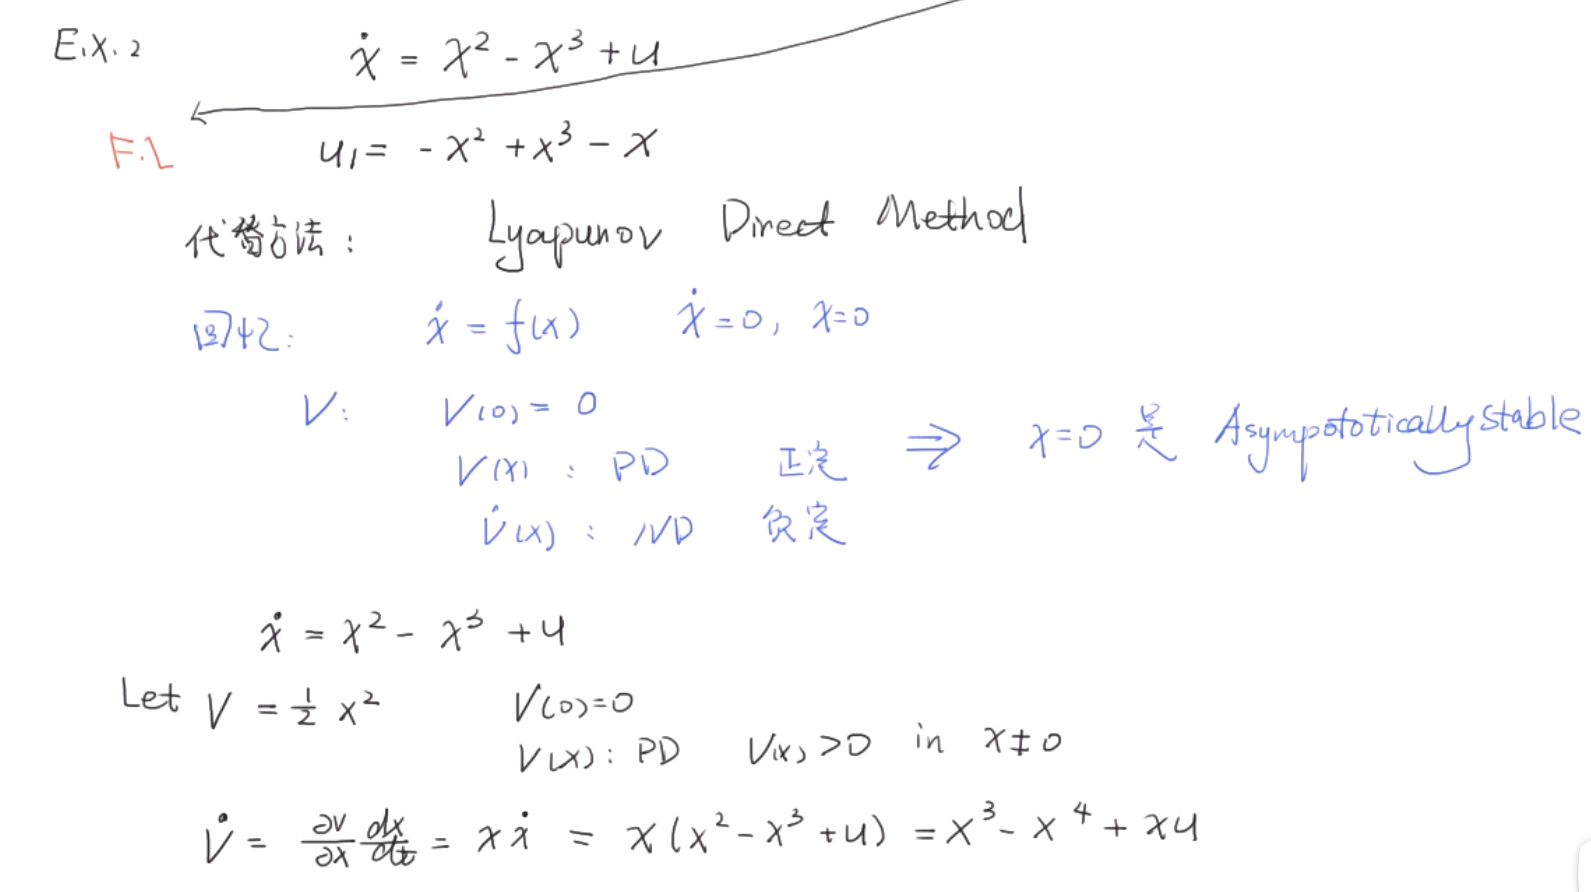 E.X.2 ẋ = x² - x³ + u
F.L u₁ = - x² + x³ - x
代替方法： Lyapunov Direct Method
回忆： ẋ = f(x) ẋ = 0, x=0
V: V(0) = 0
V(x) : PD 正定 ⇒ x=0 是 Asympototically stable
V̇(x) : ND 负定
ẋ = x² - x³ + u
Let V = ½ x² V(0)=0
V(x): PD V(x) >0 in x‡0
V̇ = ∂V/∂x dx/dt = xẋ = x(x² - x³ + u) = x³ - x⁴ + xu